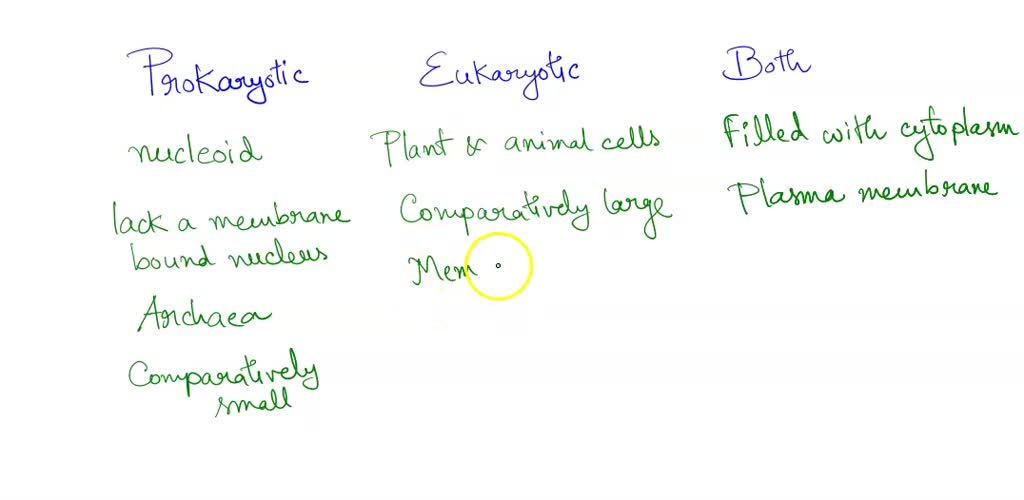 Prokaryotic
nucleoid
lack a membrane
bound nucleus
Archaea
Comparatively
small
Eukaryotic
Plant & animal cells
Comparatively large
Mem
Both
Filled with cytoplasm
Plasma membrane